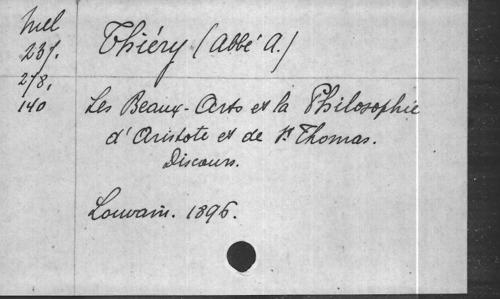 Mel
237.
278,
140
Thiéry (Abbé A.)
Les Beaux-Arts et la Philosophie
d'Aristote et de St Thomas.
Discours.
Louvain. 1896.